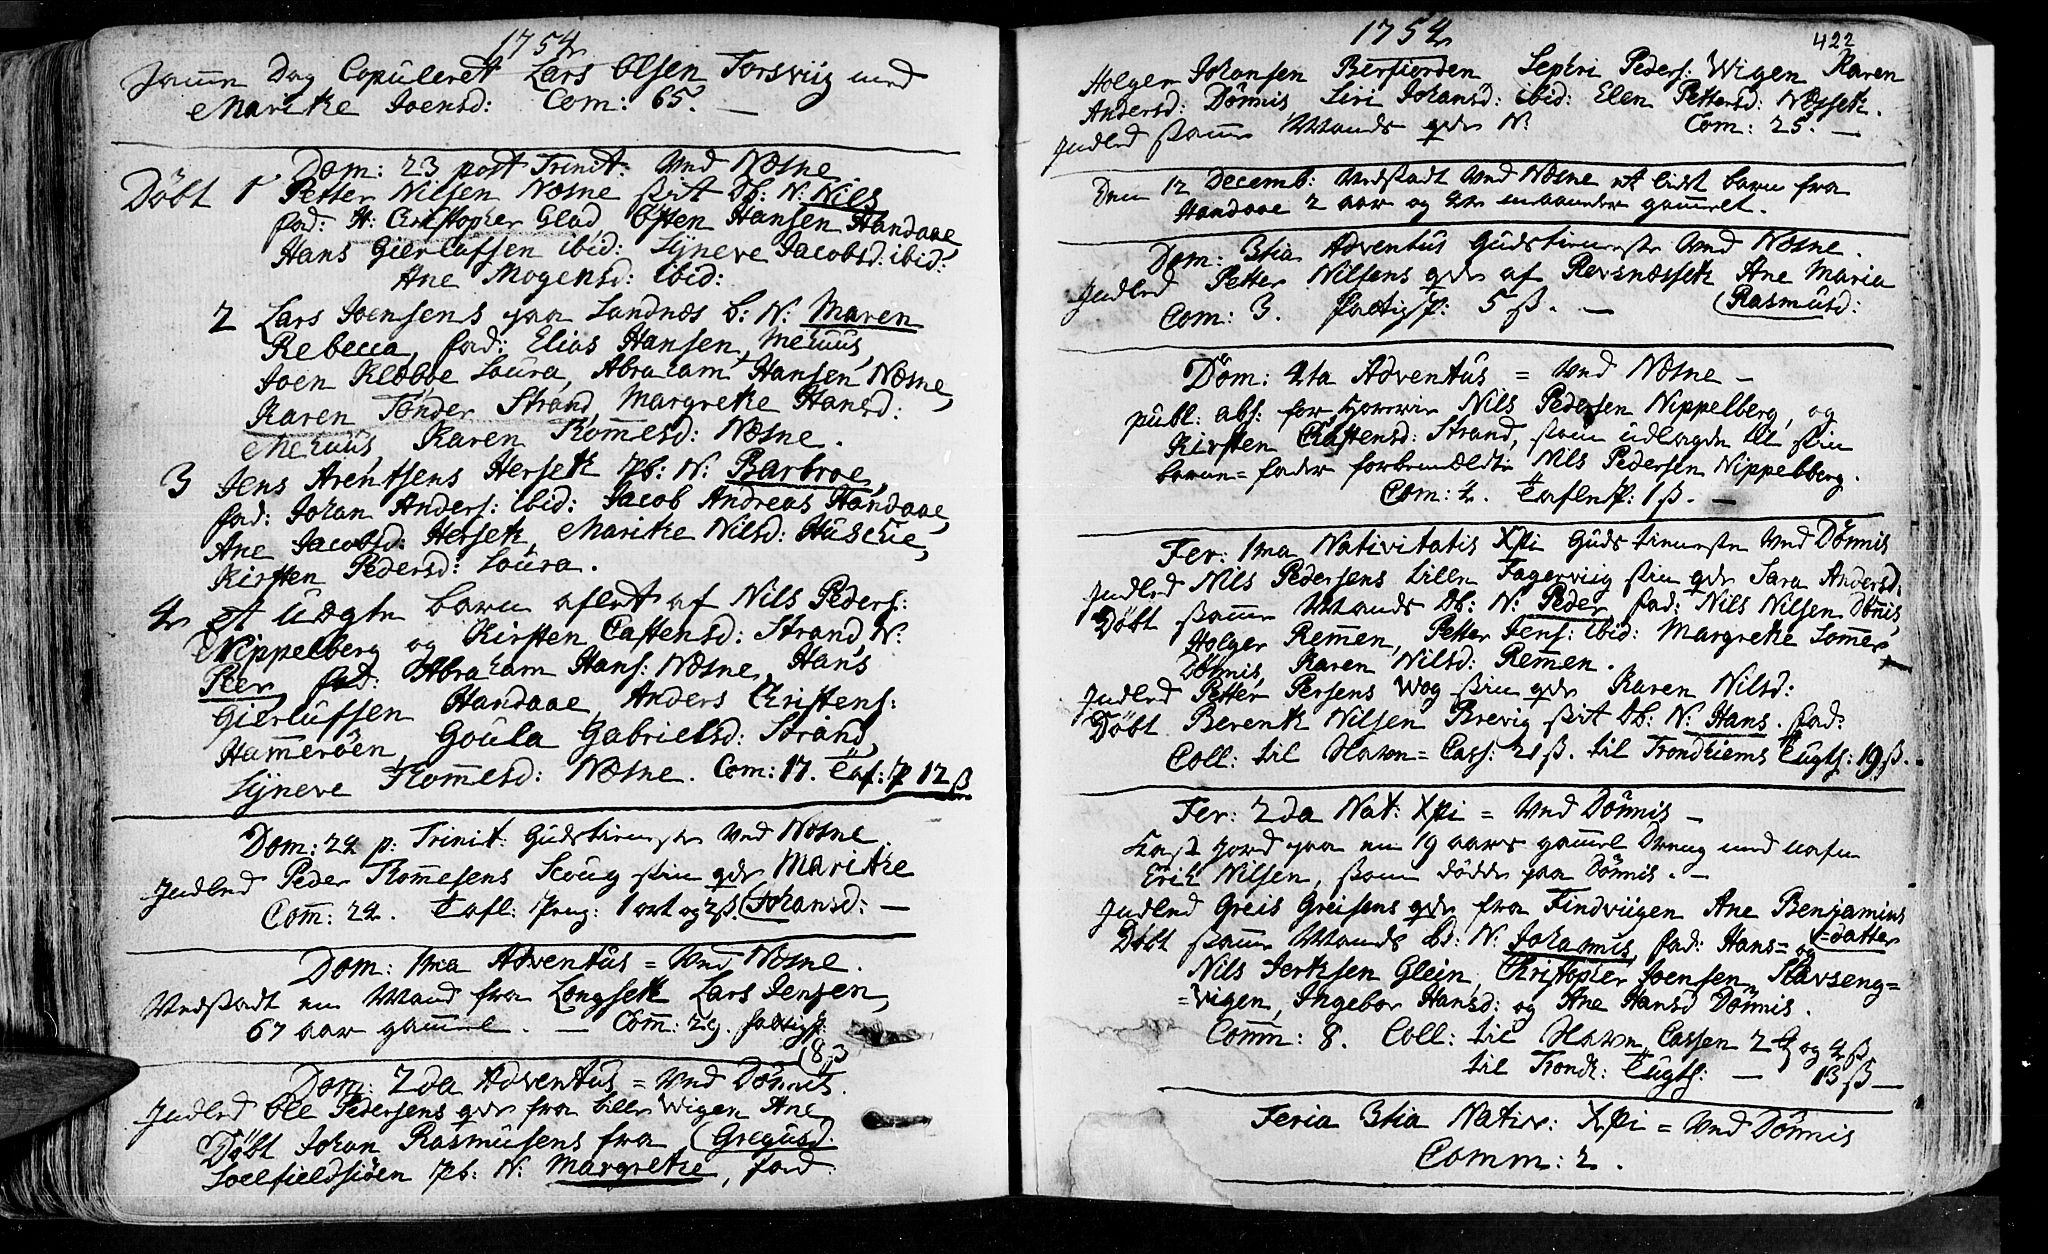 1754
Samme Dag Copuleret Lars Olsen Forsviig med
Maritke Joensd: Com: 65. —
Dom: 23 post Trinit: Ved Næsne.
Döbt 1 Petter Nilsen Næsne sit db: N: Nils
fad: H: Christopher Glad, Osten Hansen Handaae,
Hans Gierlufsen ibid: Syneve Jacobsd: ibid:
Ane Mogensd: ibid:
2 Lars Joensens paa Landnæs b: N: Maren
Rebecca, fad:, Elias Hansen,
Joen Klobbe Loura, Abraham Hansen Næsne,
Karen Tønder Strand, Margreke Hansd:
Karen Tommesd: Næsne.
3 Jens Arentsens Hersetk pb: N: Barbroe,
fad: Johan Anders: ibid: Jacob Andreas Handaae,
Ane Jacobsd: Hersetk, Maritke Nilsd: Husebye,
Kirsten Pedersd: Loura.
4 et Uægte barn aflet af Nils Peders:
Nippelberg og Kirsten Castensd: Strand N:
Peer fad: Abraham Hans: Næsne, Hans
Gierlufsen Handaae, Anders Christens:
Hammeröen, Goula Gabrielsd: Strand,
Syneve Tommesd: Næsne. Com: 17. Taf: p 12 ß
Dom: 24 p: Trinit: Gudstieneste Ved Næsne.
Indled Peder Tommesens Scoug sin qde Maritke
Com: 24. Tafl: Peng: 1 ort og 2ß (Johansd: —
Dom: 1ma Adventus = Ved Næsne.
Vedstadt en Mand fra Longsetk Lars Jensen,
67 aar gammel. — Com: 29. fattigp:
(8 ß
Dom: 2da Adventus = Ved Dönnis.
Indled Ole Pedersens qde fra lille Wigen Ane
Döbt Johan Rasmusens fra (Gregusd.
Soelfieldsiöen pb: N: Margretke, fad:
1754 422
Holger Johansen Berfiorden Peders: Wigen Karen
Andersd: Dönnis Siri Johansd: ibid: Elen Pettersd: Næssetk.
Indled samme Mands qde N: Com: 25. —
Den 12 Decemb: Vedstadt Ved Næsne et lidet barn fra
Handaae 2 aar og 4 maaneder gammelt.
Dom: 3tia Adventus Gudstieneste Ved Næsne.
Indled Petter Nilsens qde af Revsnæssetk Ane Maria
Com: 3. fattigp: 5 ß. — (Rasmusd:
Dom: 4ta Adventus = Ved Næsne —
publ: abs: for Nils Pedersen Nippelberg, og
Kirsten Castensd: Strand, som udlagde til sin
barne=fader forbemældte Nils Pedersen Nippelberg.
Com: 4. Taflep: 1 ß. —
Fer: 1ma Nativitatis Xpi Guds tieneste Ved Dönnis
Indled Nils Pedersens Lille Fagerviig sin qde Sara Andersd:
Döbt samme Mands db: N: Peder, fad: Nils Nilsen Dönnis,
Holger Remen, Petter Jens: ibid: Margreke Sommer
Dönnis, Karen Nilsd: Remmen.
Indled Petter Persens Wog sin qde Karen Nilsd:
Döbt Berentk Nilsen Brevig sit db: N: Hans. fad:
Coll: til Havn=Cass: 21 ß. til Trondhiems Tugth: 19 ß.
Fer: 2da Nat: Xpi = Ved Dönnis —
Kast Jord paa en 19 aars gammel Dreng med nafn
Erik Nilsen, som dödde paa Dönnis. —
Indled Greis Greisens qde fra Findviigen Ane Benjamins
Döbt samme Mands bd: N: Johannis fad: Hans= og (=datter
Nils Jertksen Glein, Christopher Joensen Stavseng=
=vigen, Ingebor Hansd: og Ane Hansd Dönnis.
Comm: 8. Coll: til Havn Cassen 2 og 4 ß
til Trondh: Tugth: — 13 ß —
Feria 3tia Nativ: Xpi = Ved Dönnis
Comm: 2.